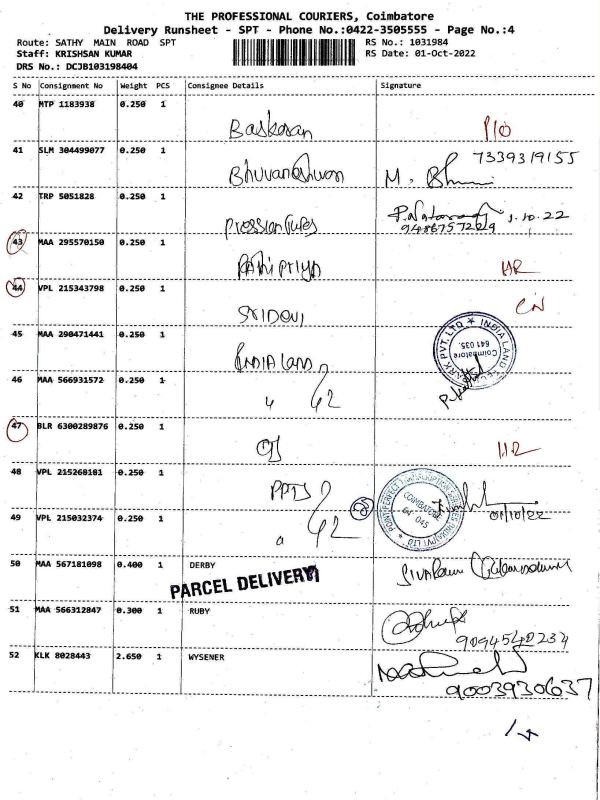 THE PROFESSIONAL COURIERS, Coimbatore
Delivery Runsheet - SPT - Phone No.:0422-3505555 - Page No.:4
Route: SATHY MAIN ROAD SPT RS No.: 1031984
Staff: KRISHSAN KUMAR RS Date: 01-Oct-2022
DRS No.: DCJB103198404
S No Consignment No Weight PCS Consignee Details Signature
40 MTP 1183938 0.250 1
Baskaran
41 SLM 304499077 0.250 1 7339319155
Bhuvaneshwari M.
42 TRP 5051828 0.250 1 1.10.22
9486757229
43 MAA 295570150 0.250 1
44 VPL 215343798 0.250 1
SRIDEVI
45 MAA 290471441 0.250 1
INDIA Land INDIA LAND PVT. LTD Coimbatore 641 035.
46 MAA 566931572 0.250 1
47 BLR 6300289876 0.250 1
48 VPL 215268181 0.250 1
COIMBATORE
49 VPL 215032374 0.250 1 01/10/22
50 MAA 567181098 0.400 1 DERBY
PARCEL DELIVERY
51 MAA 566312847 0.300 1 RUBY
9094540234
52 KLK 8028443 2.650 1 WYSENER
9003930637